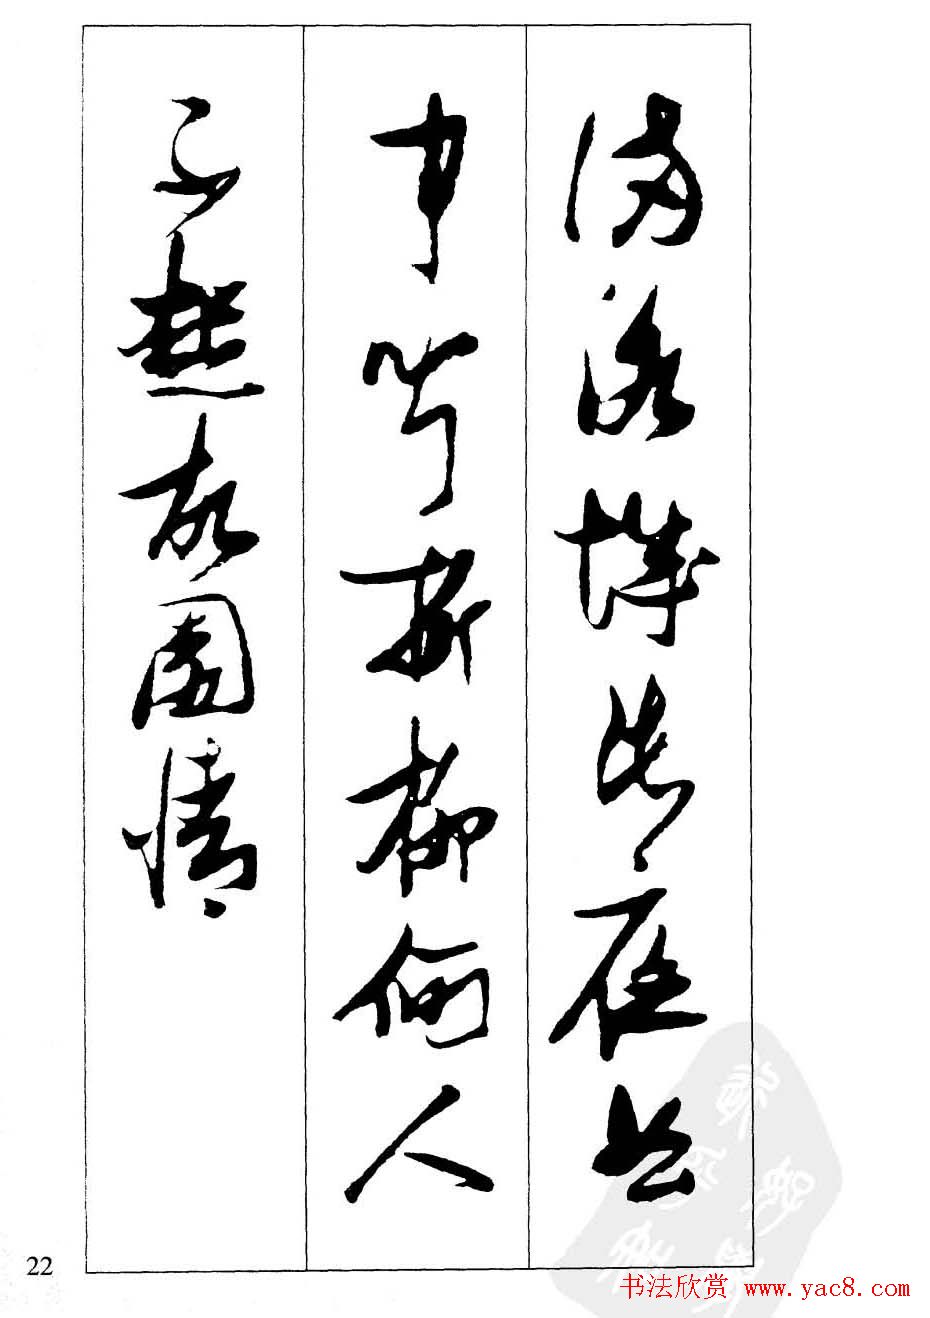 滿洛城此夜曲
中聞折柳何人
不起故園情
22
书法欣赏 www.yac8.com